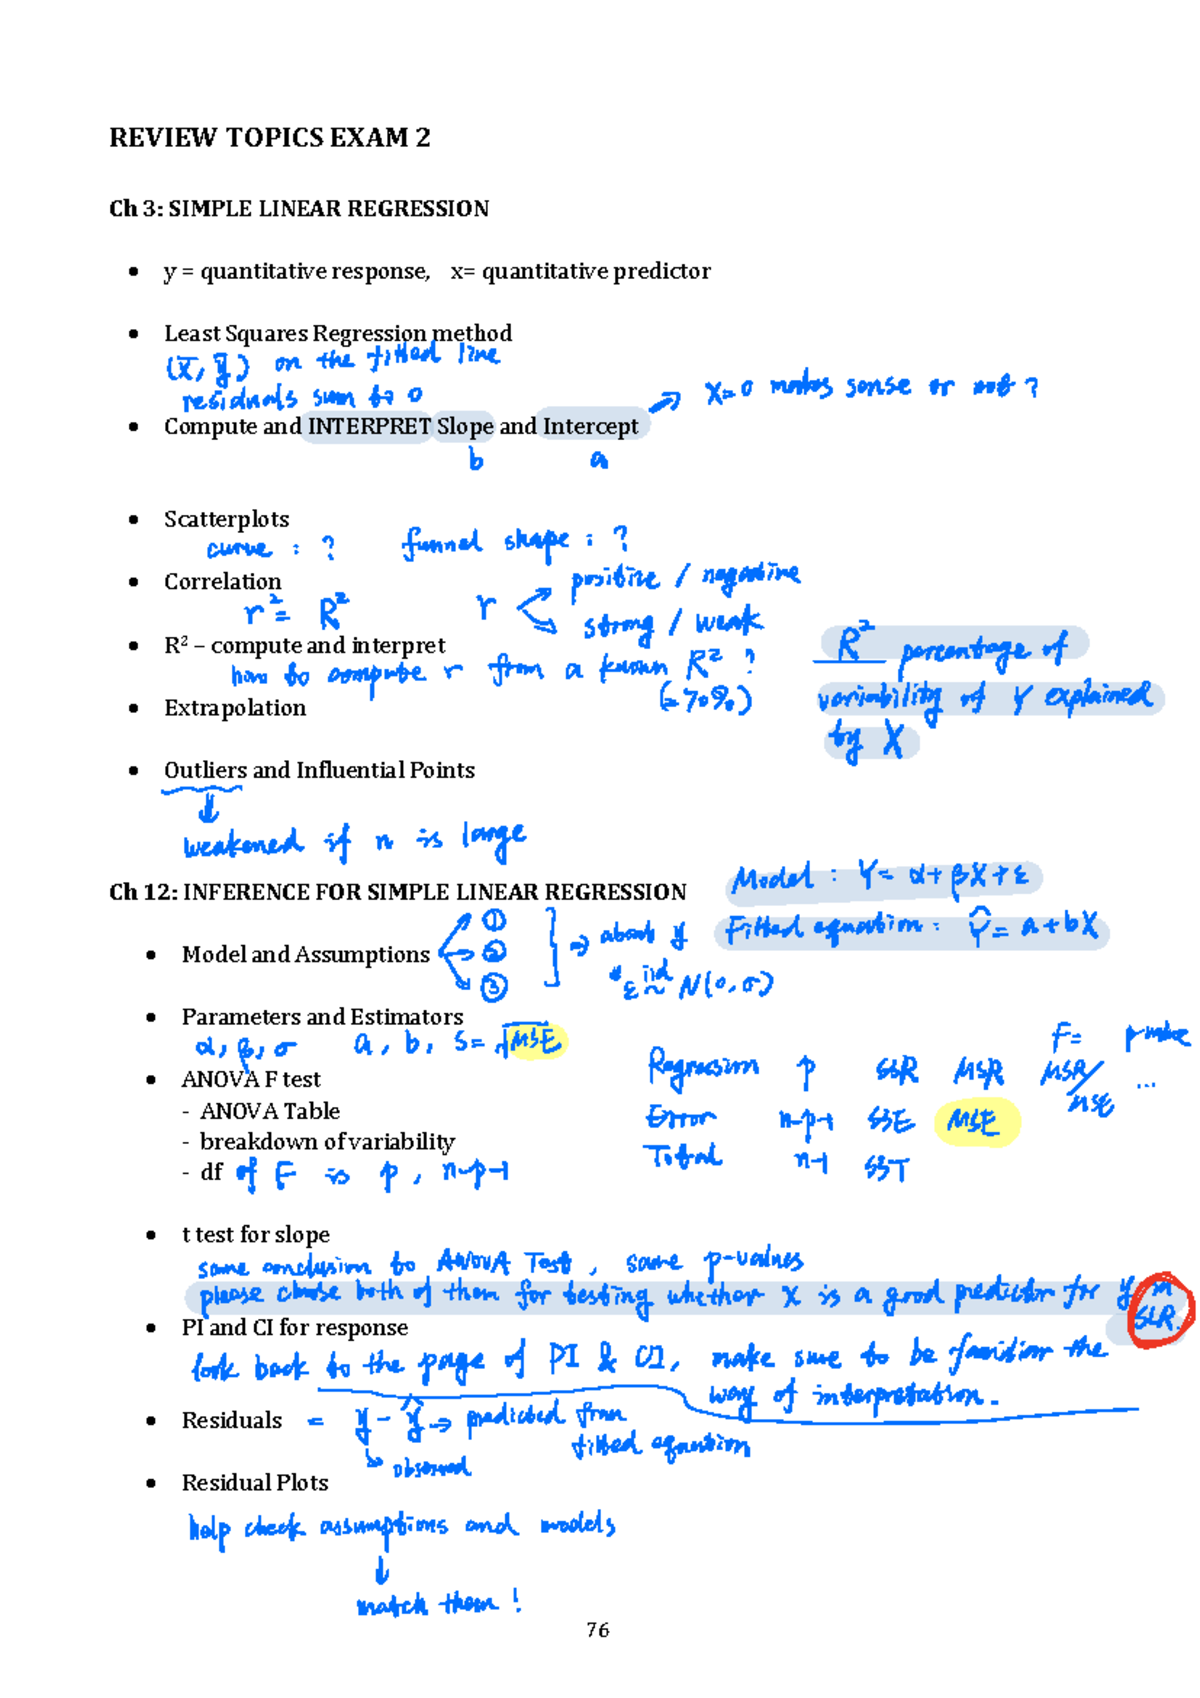 REVIEW TOPICS EXAM 2
Ch 3: SIMPLE LINEAR REGRESSION
• y = quantitative response, x= quantitative predictor
• Least Squares Regression method
(x̄, ȳ) on the fitted line
residuals sum to 0
x=0 makes sense or not ?
• Compute and INTERPRET Slope and Intercept
b a
• Scatterplots
curve : ? funnel shape : ?
• Correlation
positive / negative
r² = R² r
strong / weak
• R² – compute and interpret
how to compute r from a known R² ?
(=70%)
R² percentage of
variability of Y explained
by X
• Extrapolation
• Outliers and Influential Points
weakened if n is large
Ch 12: INFERENCE FOR SIMPLE LINEAR REGRESSION
Model : Y = α + βX + ε
Fitted equation : Ŷ = a + bX
• Model and Assumptions
① ② ③ ⇒ about y
* ε iid ~ N(0, σ)
• Parameters and Estimators
α, β, σ a, b, s = √MSE
• ANOVA F test
- ANOVA Table
- breakdown of variability
- df of F is p, n-p-1
F= p-value
Regression p SSR MSR MSR/MSE ...
Error n-p-1 SSE MSE
Total n-1 SST
• t test for slope
same conclusion to ANOVA Test, same p-values
please choose both of them for testing whether X is a good predictor for y in SLR.
• PI and CI for response
look back to the page of PI & CI, make sure to be familiar the
way of interpretation.
• Residuals = y - ŷ → predicted from
fitted equation
observed
• Residual Plots
help check assumptions and models
match them !
76